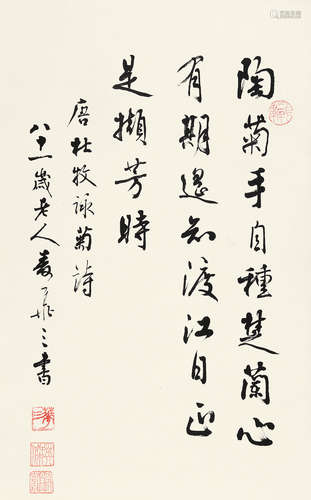 陶菊手自種楚蘭心
有期遥知渡江日正
是擷芳時
唐杜牧詠菊詩
八十一歲老人麦華三書